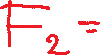 F₂ =